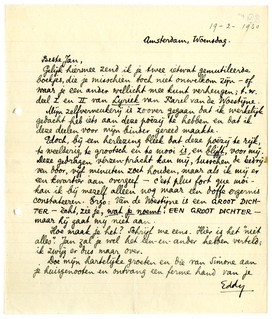 19-2-1930
Amsterdam, Woensdag.
Beste Jan,
Gelijk hiermee zend ik je twee ietwat gemutileerde
boekjes, die je misschien toch niet onwelkom zijn - of
waar je een ander wellicht mee kunt verheugen: n.m.
deel I en II van Lyriek van Karel van de Woestijne.
Mijn zelfverrekening is zoover gegaan dat ik werkelijk
gedacht heb iets aan deze poëzie te hebben en dat ik
deze deelen voor mijn binder gereed maakte.
Edoch, bij een herlezing bleek dat deze poëzie te rijk,
te weelderig te grootsch en te mooi is, en blijft, voor mij.
Deze gedragen verzenpracht kan mij, tusschen de bedrij-
ven door, vijf minuten zoet houden, maar als ik mij er
een kwartier aan overgeef - c'est plus fort que moi -
kan ik bij mezelf alleen nog maar een boffe ergernis
constateeren. Ergo: Van de Woestijne is een GROOT DICH-
TER - zooals, zie je, wat je noemt: EEN GROOT DICHTER -
maar hij gaat mij niet aan.
Hoe maak je het? Schrijf me eens. Hier is het "niet
alles". Jan zal je wel het een en ander hebben verteld;
ik zwijg er dus maar over.
Doe mijn hartelijke groeten en die van Simone aan
je huisgenooten en ontvang een ferme hand van je
Eddy